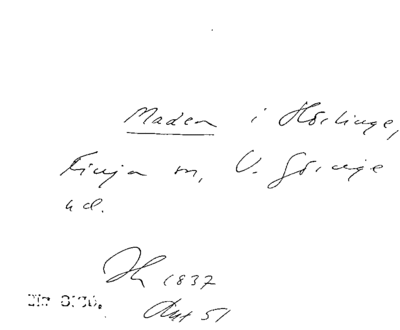 Maden i Hörlinge,
Finja sn, V. Göinge
hd.
1837